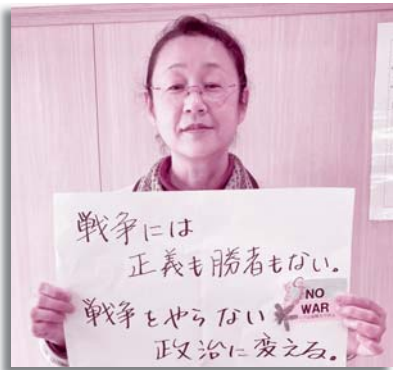 戦争には
正義も勝者もない。
戦争をやらない
政治に変える。
NO
WAR